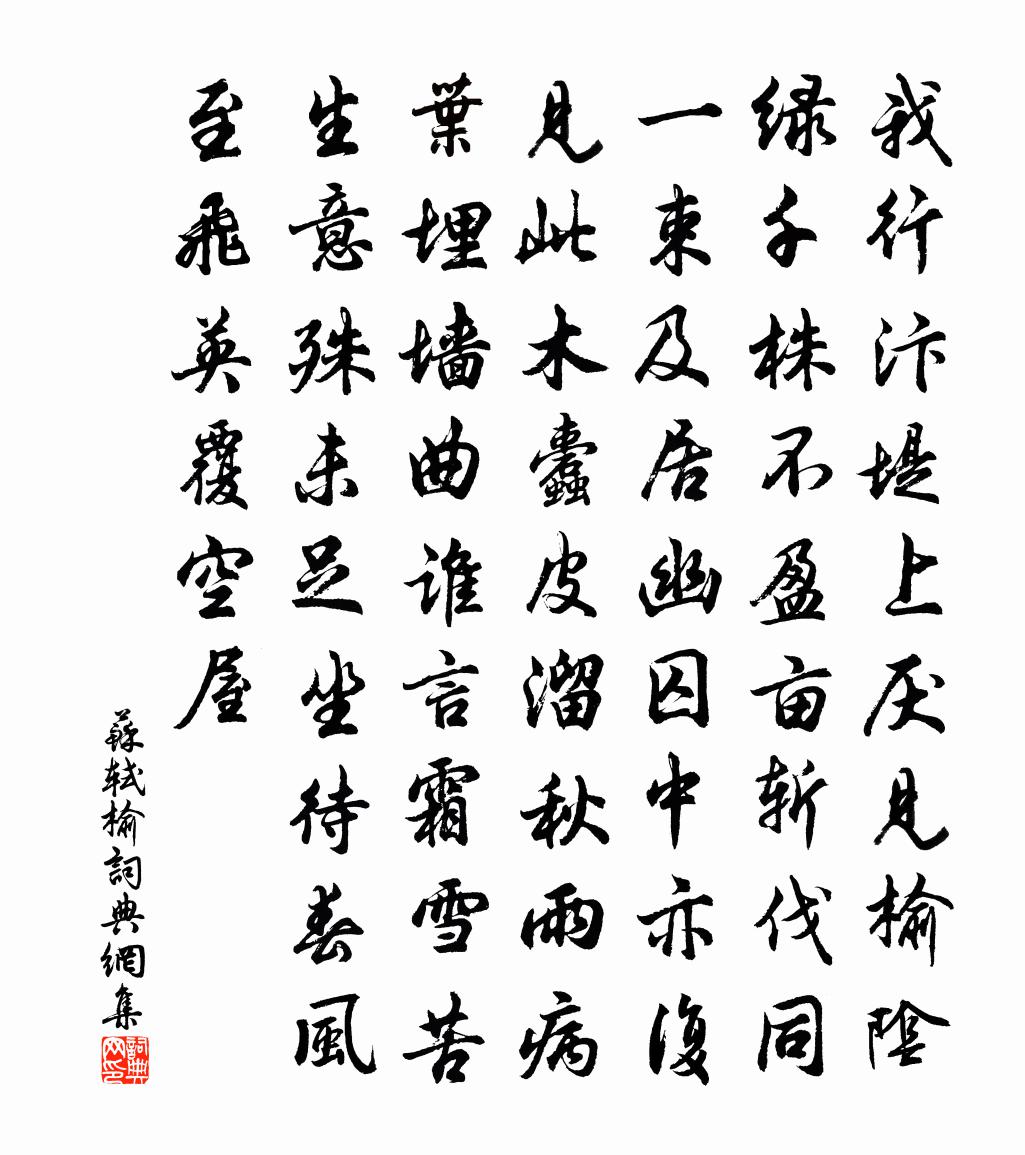 我行汴堤上厌見榆陰
緑千株不盈亩斩伐同
一束及居幽囚中亦復
見此木蠹皮溜秋雨病
葉埋墙曲谁言霜雪苦
生意殊未足坐待春風
至飛英覆空屋
蘇轼榆詞典網集
詞典网印